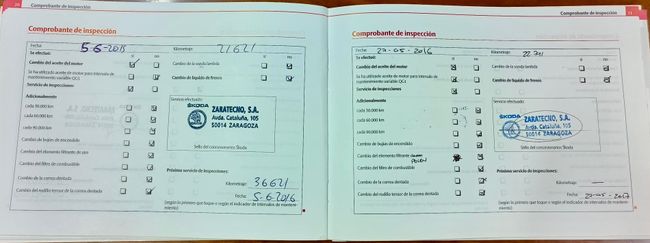 Comprobante de inspección
Comprobante de inspección
Fecha: 5-6-2015 Kilometraje: 21621
Se efectuó: sí no
Cambio del aceite del motor
Cambio de la sonda lambda
Se ha utilizado aceite de motor para intervalo de
mantenimiento variable QG1
Cambio de líquido de frenos
Servicio de inspecciones
Adicionalmente
cada 30.000 km
cada 60.000 km
cada 90.000 km
Cambio de bujías de encendido
Cambio del elemento filtrante de aire
Cambio del filtro de combustible
Cambio de la correa dentada
Cambio del rodillo tensor de la correa dentada
Servicio efectuado:
ŠKODA
ZARATECNO, S.A.
Avda. Cataluña, 105
50014 ZARAGOZA
Sello del concesionario Škoda
Próximo servicio de inspecciones:
Kilometraje: 36621
Fecha: 5-6-2016
(según lo primero que toque o según el indicador de intervalos de mantenimiento)
Comprobante de inspección
Comprobante de inspección
Fecha: 27-05-2016 Kilometraje:
Se efectuó: sí no
Cambio del aceite del motor
Cambio de la sonda lambda
Se ha utilizado aceite de motor para intervalo de
mantenimiento variable QG1
Cambio de líquido de frenos
Servicio de inspecciones
Adicionalmente
cada 30.000 km
cada 60.000 km
cada 90.000 km
Cambio de bujías de encendido
Cambio del elemento filtrante
POLEN
Cambio del filtro de combustible
Cambio de la correa dentada
Cambio del rodillo tensor de la correa dentada
Servicio efectuado:
ŠKODA
ZARATECNO, S.A.
Avda. Cataluña, 105
50014 ZARAGOZA
Sello del concesionario Škoda
Próximo servicio de inspecciones:
Kilometraje: —
Fecha: 27-05-2017
(según lo primero que toque o según el indicador de intervalos de mantenimiento)